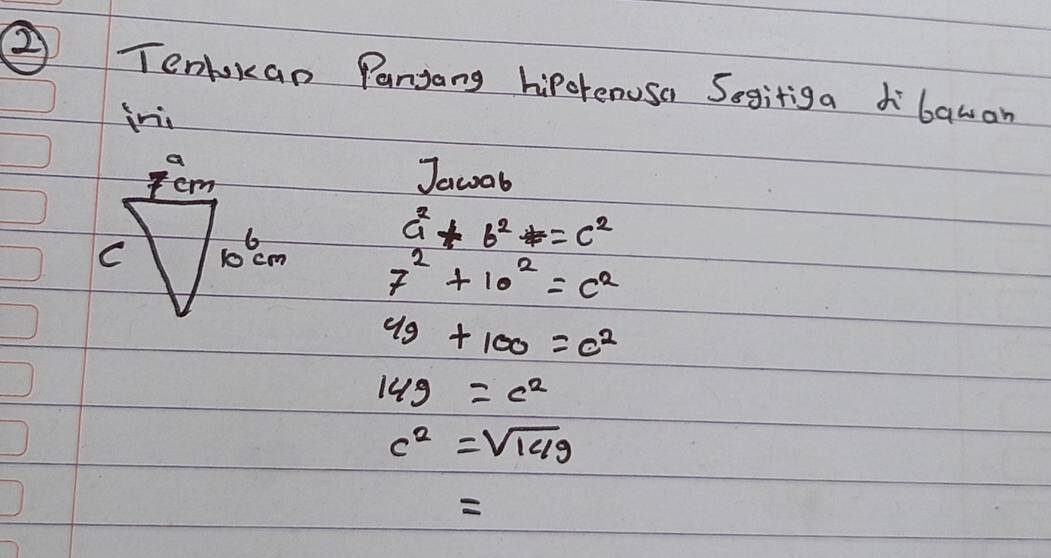 2 Tentukan Panjang hipotenusa Segitiga di bawah
ini
a
7 cm
c
b
10 cm
Jawab
a² + b² = c²
7² + 10² = c²
49 + 100 = c²
149 = c²
c² = √149
=